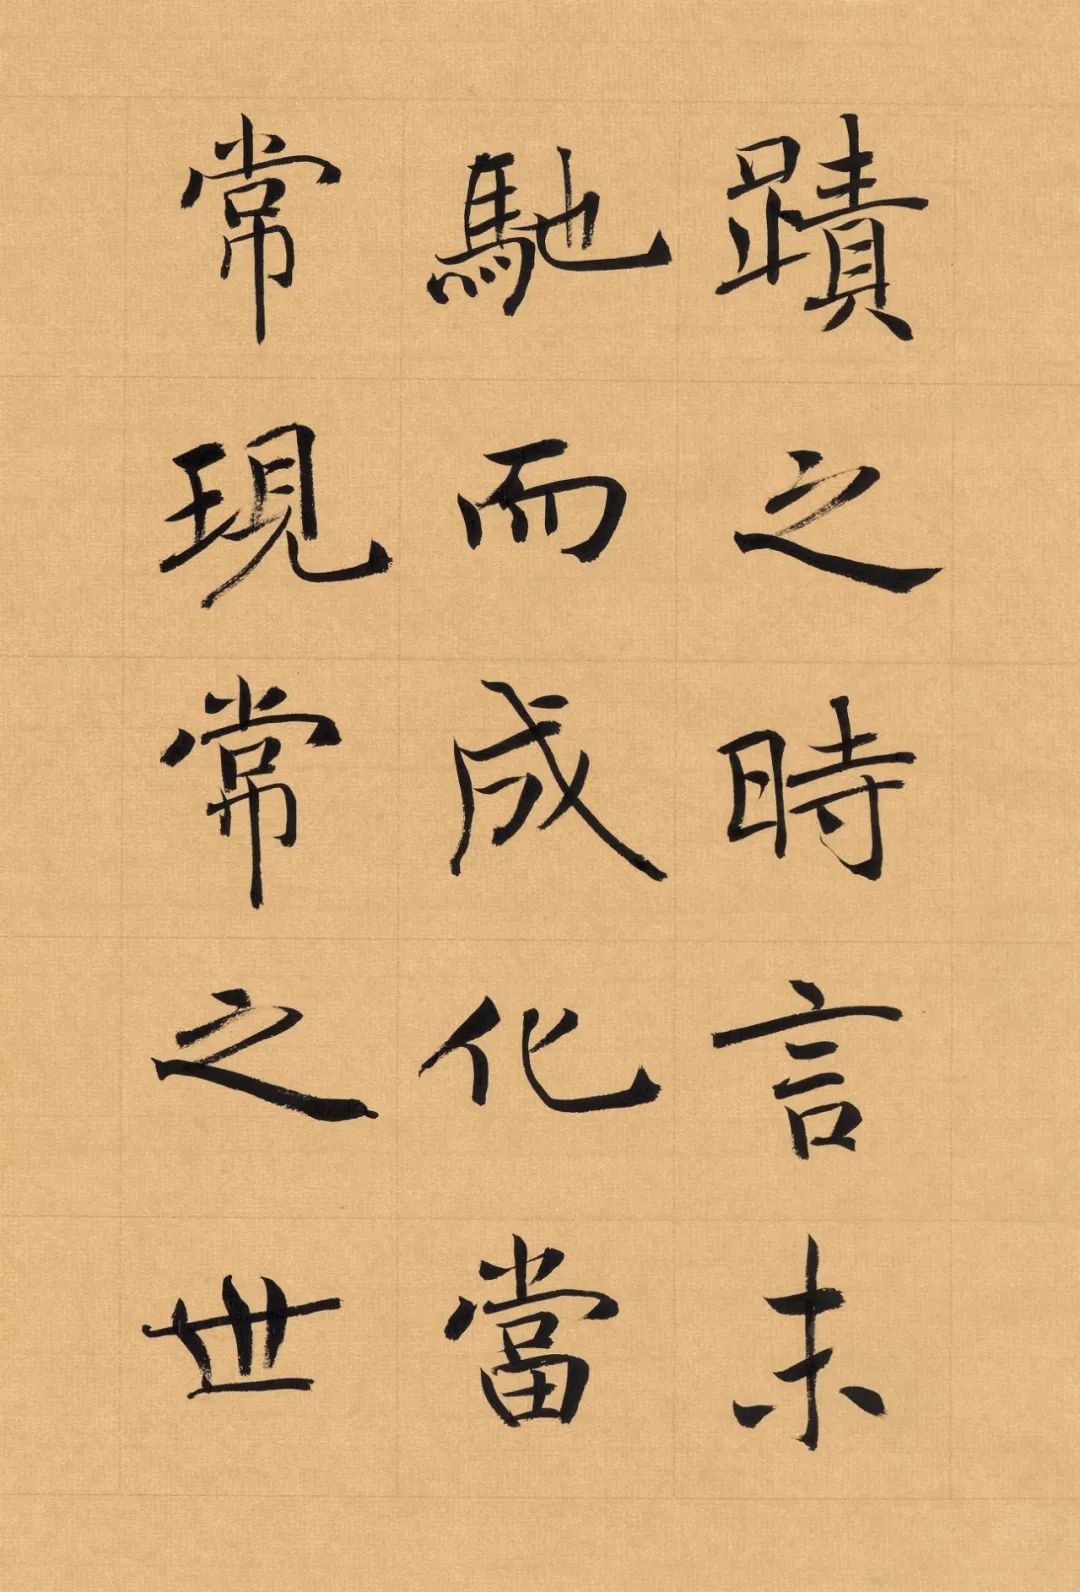 蹟之時言未
馳而成化當
常現常之世